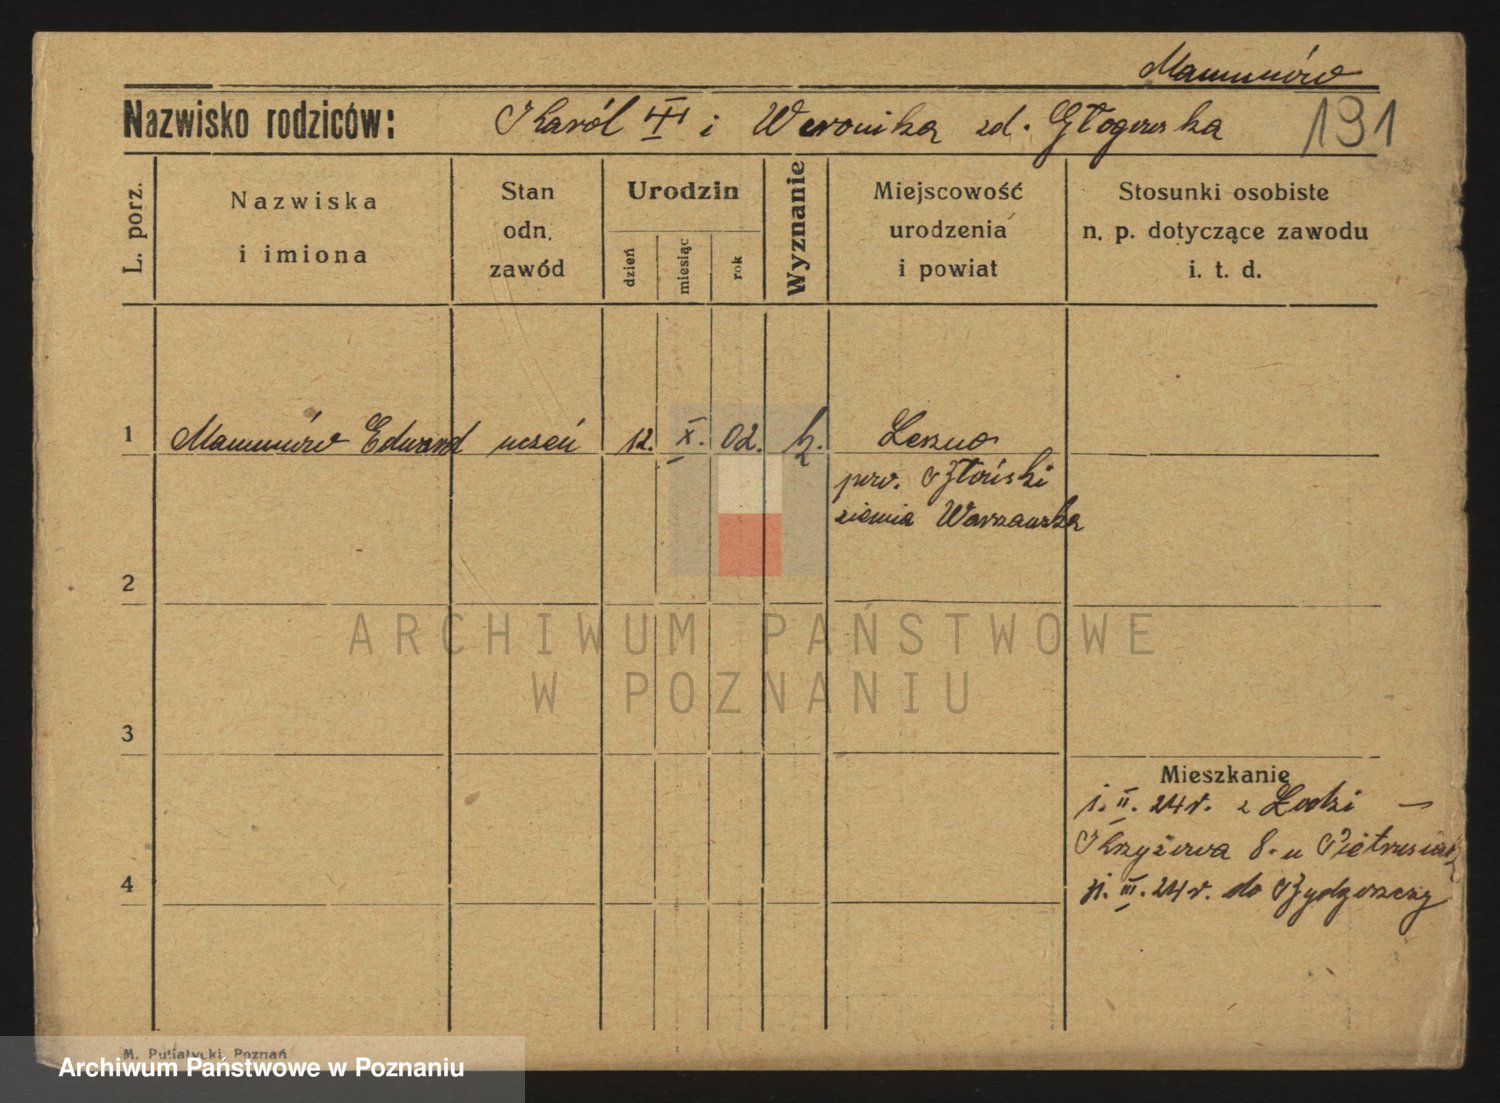 Nazwisko rodziców: Karól i Weronika zd. Głogowska
191
L. porz.
Nazwiska
i imiona
Stan
odn.
zawód
Urodzin
dzień
miesiąc
rok
Wyznanie
Miejscowość
urodzenia
i powiat
Stosunki osobiste
n. p. dotyczące zawodu
i. t. d.
1
Edward uczeń 12. X. 02. k. Leszno
pow. Błoński
ziemia Warszawska
2
ARCHIWUM PAŃSTWOWE
W POZNANIU
3
Mieszkanie
1. II. 24 r. z Łodzi —
Krzyżowa 8. u Pietrusiak
4
11. III. 24 r. do Bydgoszczy
M. Putiatycki, Poznań
Archiwum Państwowe w Poznaniu